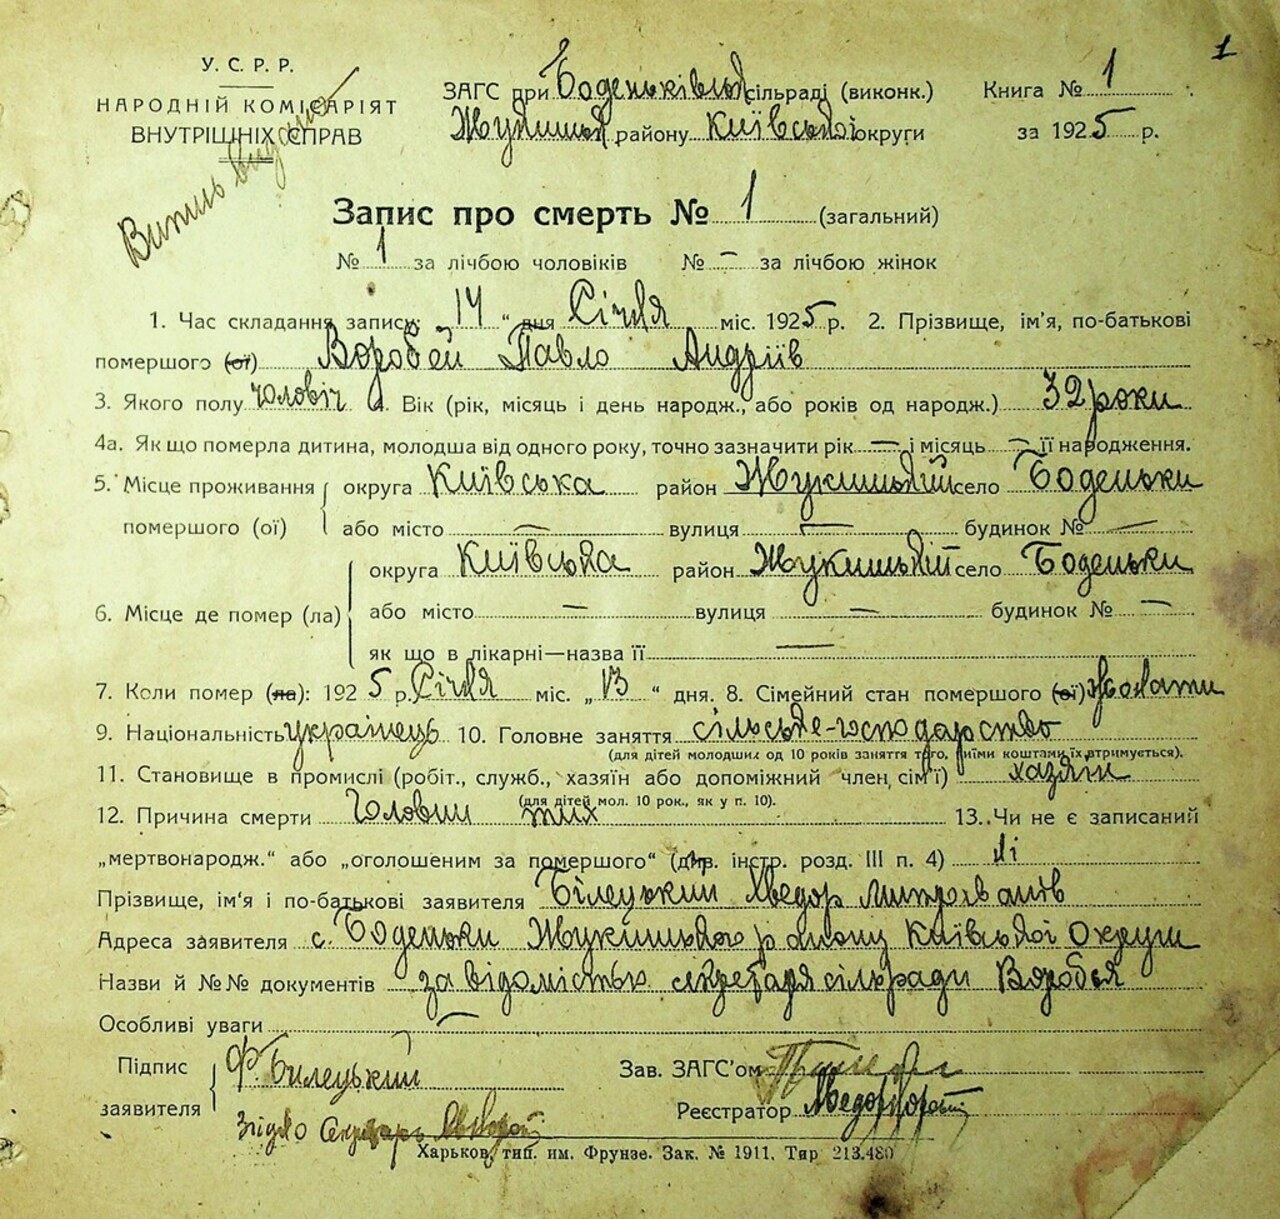 1
У. С. Р. Р.
НАРОДНІЙ КОМІСАРІЯТ
ВНУТРІШНІХ СПРАВ
Витяг видано
ЗАГС при Боденьківській сільраді (виконк.) Книга № 1
Жукинськ. району Київської округи за 1925 р.
Запис про смерть № 1 (загальний)
№ 1 за лічбою чоловіків № — за лічбою жінок
1. Час складання запису: „14“ дня Січня міс. 1925 р. 2. Прізвище, ім’я, по-батькові
помершого (ої) Воробей Павло Андріїв
3. Якого полу чоловіч 4. Вік (рік, місяць і день народж., або років од народж.) 32 роки
4а. Як що померла дитина, молодша від одного року, точно зазначити рік — і місяць — її народження.
5. Місце проживання округа Київська район Жукинський село Боденьки
помершого (ої) або місто — вулиця — будинок № —
округа Київська район Жукинський село Боденьки
6. Місце де помер (ла) або місто — вулиця — будинок № —
як що в лікарні—назва її —
7. Коли помер (ла): 1925 р. Січня міс. „13“ дня. 8. Сімейний стан помершого (ої) жонати
9. Національність українець 10. Головне заняття сільське-господарство
(для дітей молодших од 10 років заняття того, чиїми коштами їх втримується).
11. Становище в промислі (робіт., служб., хазяїн або допоміжний член сім’ї) хазяїн
(для дітей мол. 10 рок., як у п. 10).
12. Причина смерти Головни тих 13. Чи не є записаний
„мертвонародж.“ або „оголошеним за помершого“ (див. інстр. розд. III п. 4) Ні
Прізвище, ім‘я і по-батькові заявителя Білецький Хведор
Адреса заявителя с. Боденьки Жукинського району Київської Округи
Назви й №№ документів за відомістью секретаря сілради Воробья
Особливі уваги —
Підпис Ф. Билецький Зав. ЗАГС’ом
заявителя Реєстратор
Згідно Секретарь
Харьков, тип. им. Фрунзе. Зак. № 1911. Тир 213.480